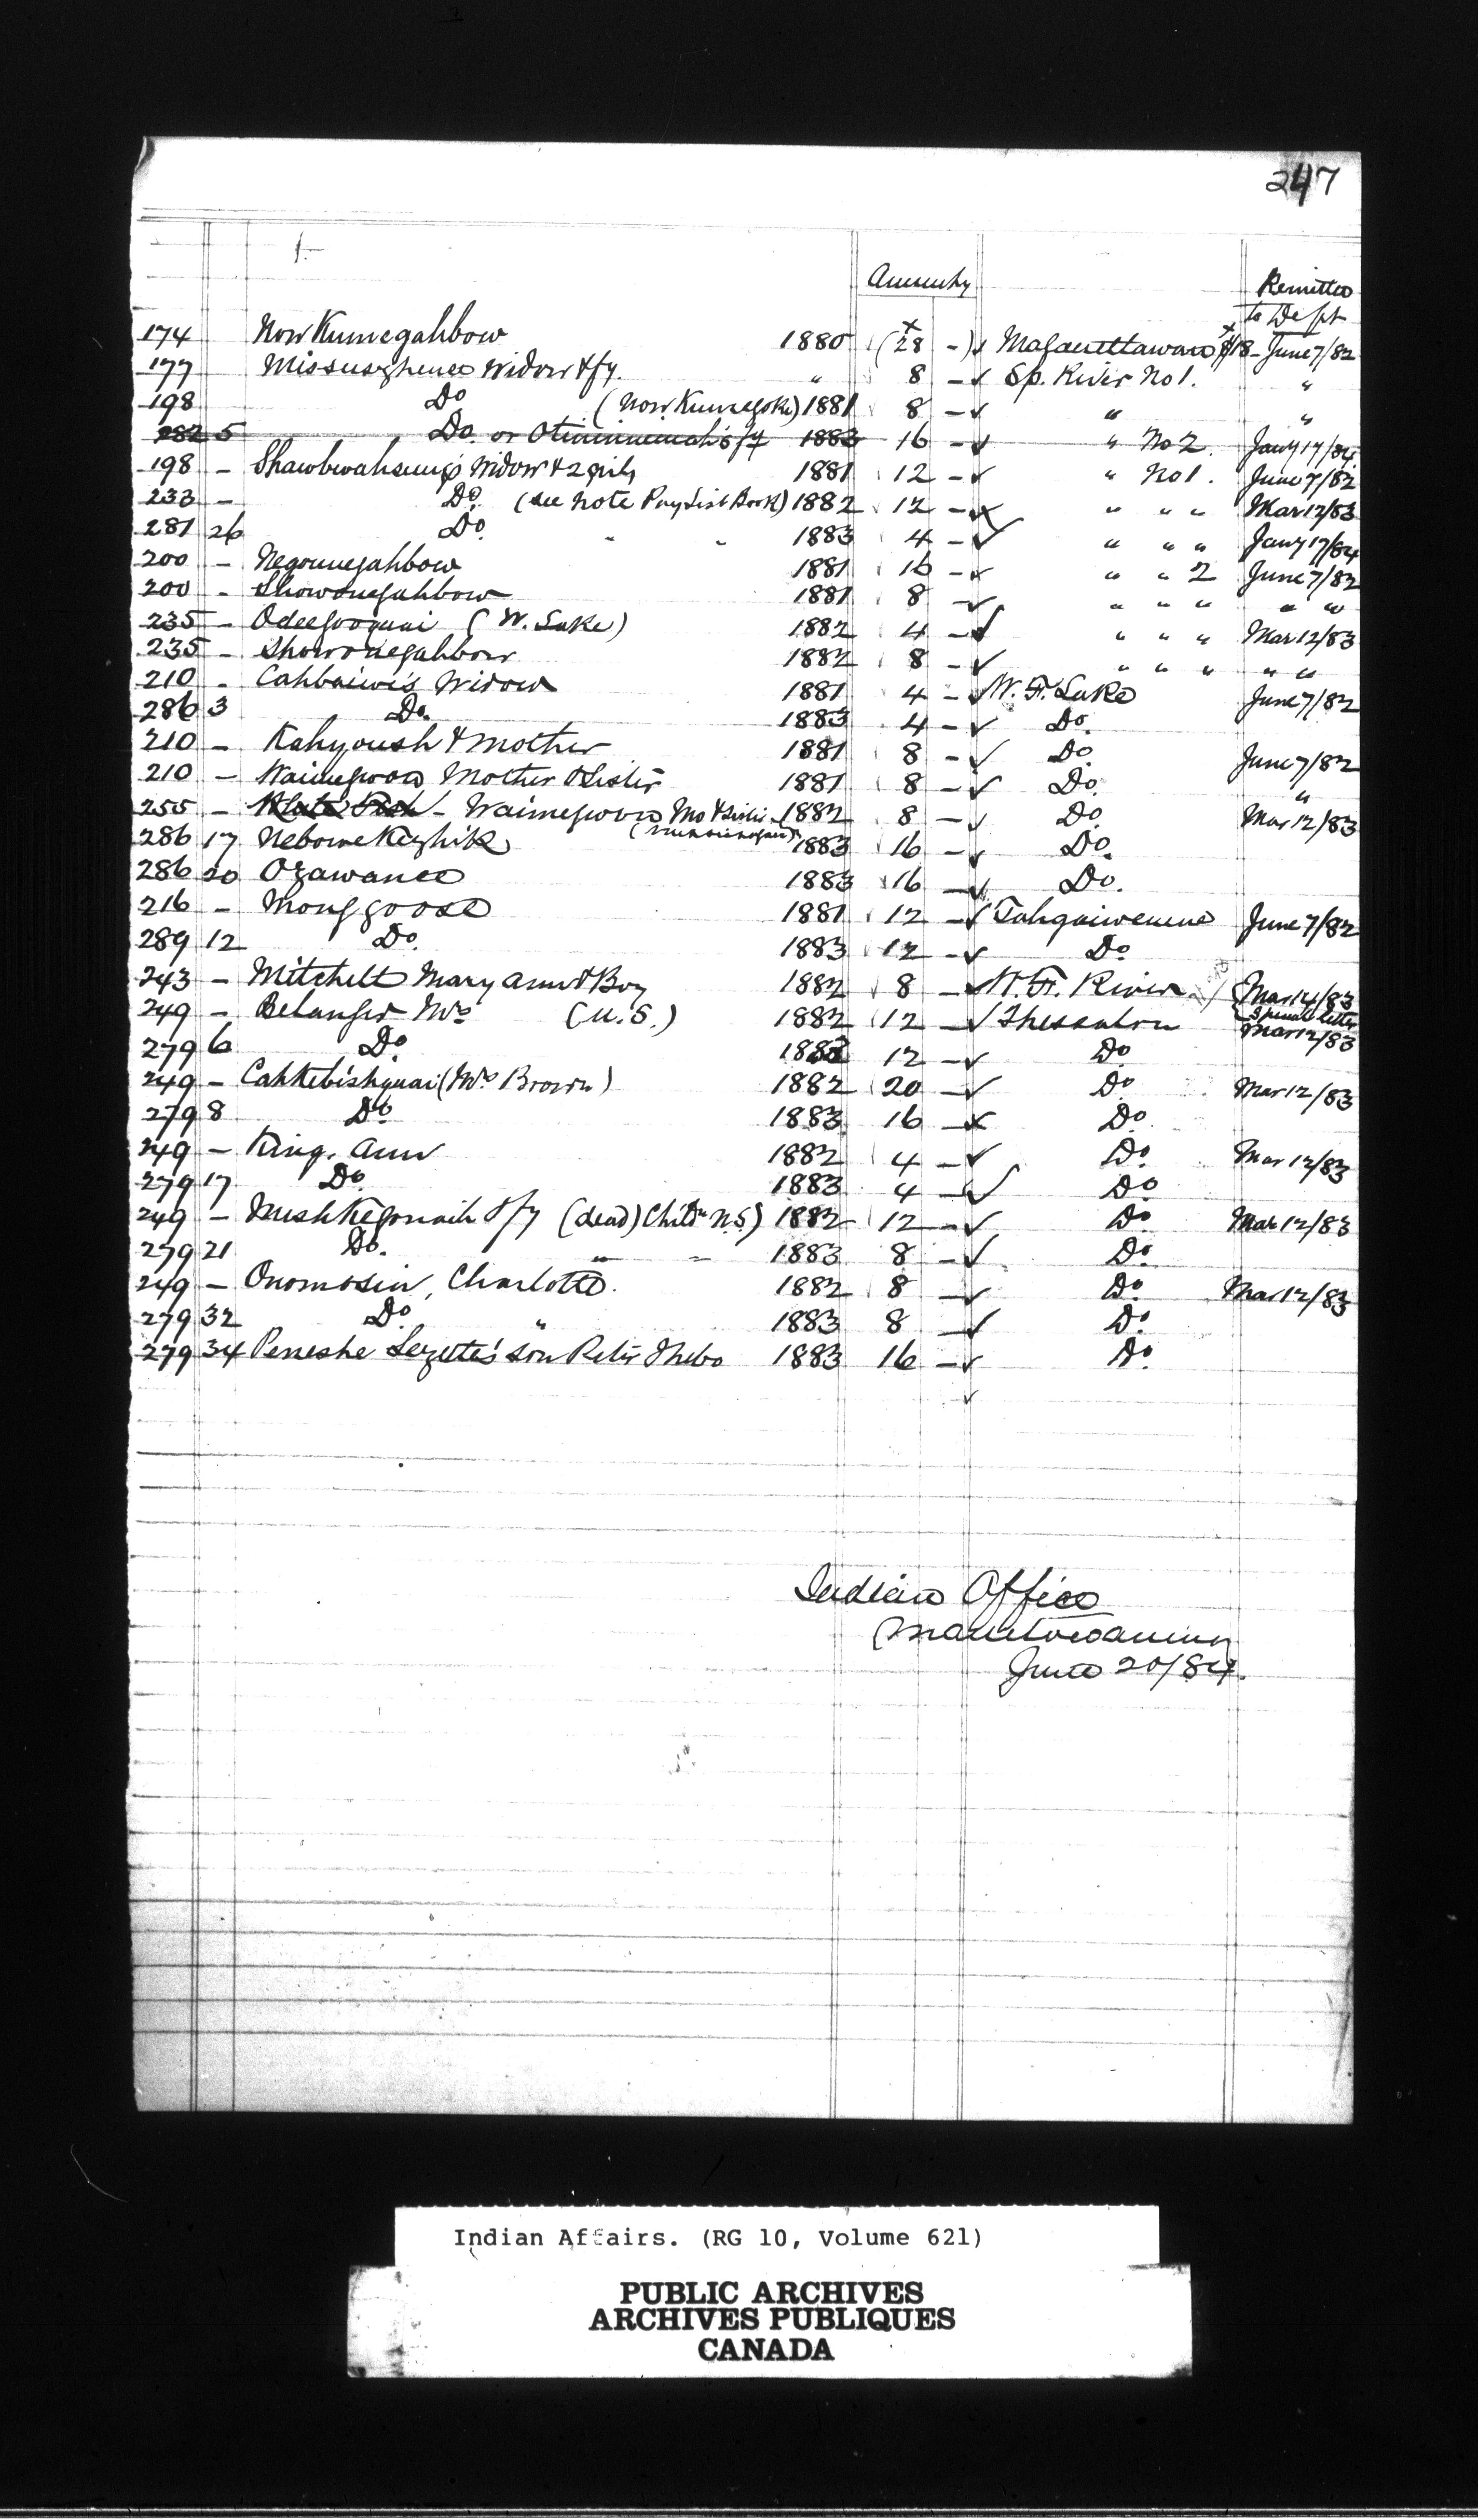 247
Annuity
Remitted
to Dept
174 Now Kumegahbow 1880 (28 -) Magauettawan $18- June 7/82
177 Missusghence Widow & fy. " 8 - Sp. River No 1. "
198 Do (Now Kumegoke) 1881 8 - " "
282 5 Do. or 1883 16 - " No 2. Jany 17/84
198 - Shawbwahsung's Widow & 2 girls 1881 12 - " No 1. June 7/82
233 - Do. (see note Pay List Book) 1882 12 - " " " Mar 12/83
281 26 Do. " " 1883 4 - " " " Jany 17/84
200 - Negonnegahbow 1881 16 - " " 2 June 7/82
200 - Showonegahbow 1881 8 - " " " " "
235 - Odeegooquai (W. Lake) 1882 4 - " " " Mar 12/83
235 - Showonegahbow 1882 8 - " " " " "
210 - Cahbaiwi's Widow 1881 4 - W. F. Lake June 7/82
286 3 Do. 1883 4 - Do.
210 - Kahyoush & Mother 1881 8 - Do June 7/82
210 - Waimegwon Mother & Sister 1881 8 - Do. "
255 - Waimegwon Mo & Sister 1882 8 - Do Mar 12/83
286 17 Nebone Kezhik 1883 16 - Do.
286 20 Ozawanee 1883 16 - Do.
216 - Monggoose 1881 12 - Tahgaiwenene June 7/82
289 12 Do. 1883 12 - Do
243 - Mitchell Mary Ann & Boy 1882 8 - W. F. River Mar 14/83
Special letter
249 - Belanger Mrs (U.S.) 1882 12 - Thessalon Mar 12/83
279 6 Do 1883 12 - Do
249 - Cahkebishquai (Mrs Brown) 1882 20 - Do Mar 12/83
279 8 Do 1883 16 - Do.
249 - King. Ann 1882 4 - Do. Mar 12/83
279 17 Do. 1883 4 - Do
249 - Mishkegonaih & fy (dead) Childn N.S.) 1882 12 - Do Mar 12/83
279 21 Do. " 1883 8 - Do.
249 - Onomosin, Charlotte. 1882 8 - Do Mar 12/83
279 32 Do " 1883 8 - Do.
279 34 Peneshe Lezette's son Peter Thebo 1883 16 - Do
Indian Office
Manitowaning
June 20/84.
Indian Affairs. (RG 10, Volume 621)
PUBLIC ARCHIVES
ARCHIVES PUBLIQUES
CANADA